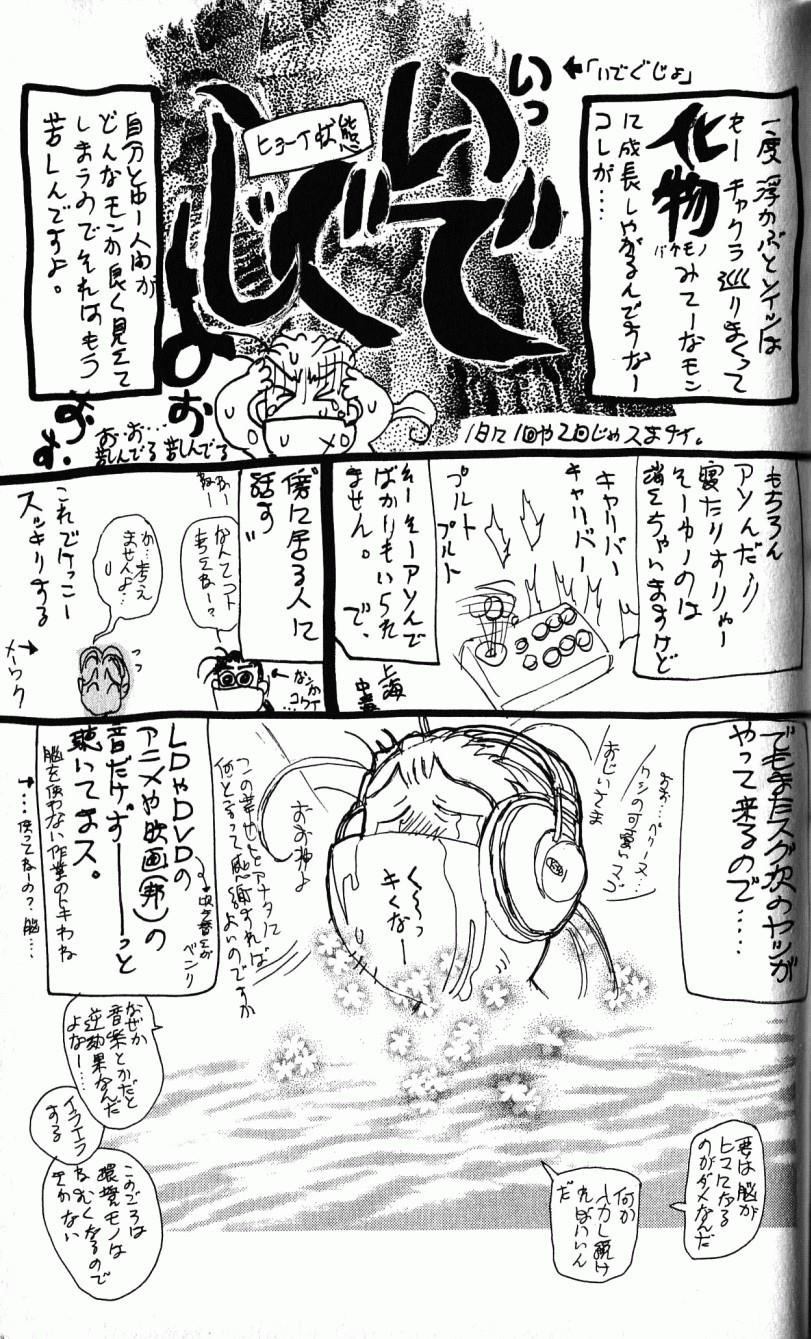 一度浮かぶとソイツは
もーキャクラ巡りまくって
化物みてーなモン
バケモノ
に成長しやがるんですなー
コレが…
←「いでぐじょ」
いっ
いで
ぐじ
ょ
ヒョーイ状態
お
お…お…
苦しんでる
苦しんでる
1日に1回や2回じゃスまナイ。
自分とゆー人間が
どんなモンか良く見えて
しまうのでそれはもう
苦しんですよ。
もちろん
アソんだり
寝たりすりゃー
そーゆーのは
消えちゃいますけど
キャリバー
キャリバー
プルト
プルト
そーそーアソんで
ばかりもいられ
ません。で、
上海
“傍に居る人に
話す”
なんてコト
考えねー?
か…考え
ませんよ…
なンか
コワイ…
これでけっこー
スッキリする
メーワク
でもまたスグ次のヤツが
やって来るので……
ワシの可愛いマゴ
おじいさま
く〜っ
キくなー
おお神よ
この幸せをアナタに
何と言って感謝すればよいのですか
LDやDVDの
アニメや映画(邦)の
音だけずーーっと
聴いてまス。
→吹き替えが
ベンリ
脳を使わない作業のトキわね
→…使ってねーの?脳…
なぜか
音楽とかだと
逆効果なんだ
よなー…
イライラ
する
このごろは
環境モノは
ねむくなるので
きかない
要は脳が
ヒマになる
のがダメなんだ
何か
入力し続け
ればいいん
だ